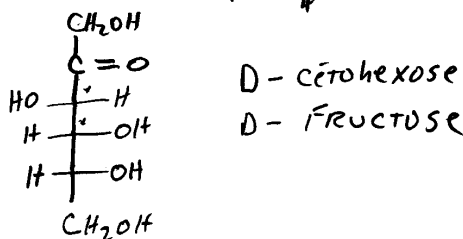 CH₂OH
C=O
HO H
H OH
H OH
CH₂OH
D - cétohexose
D - FRUCTOSE